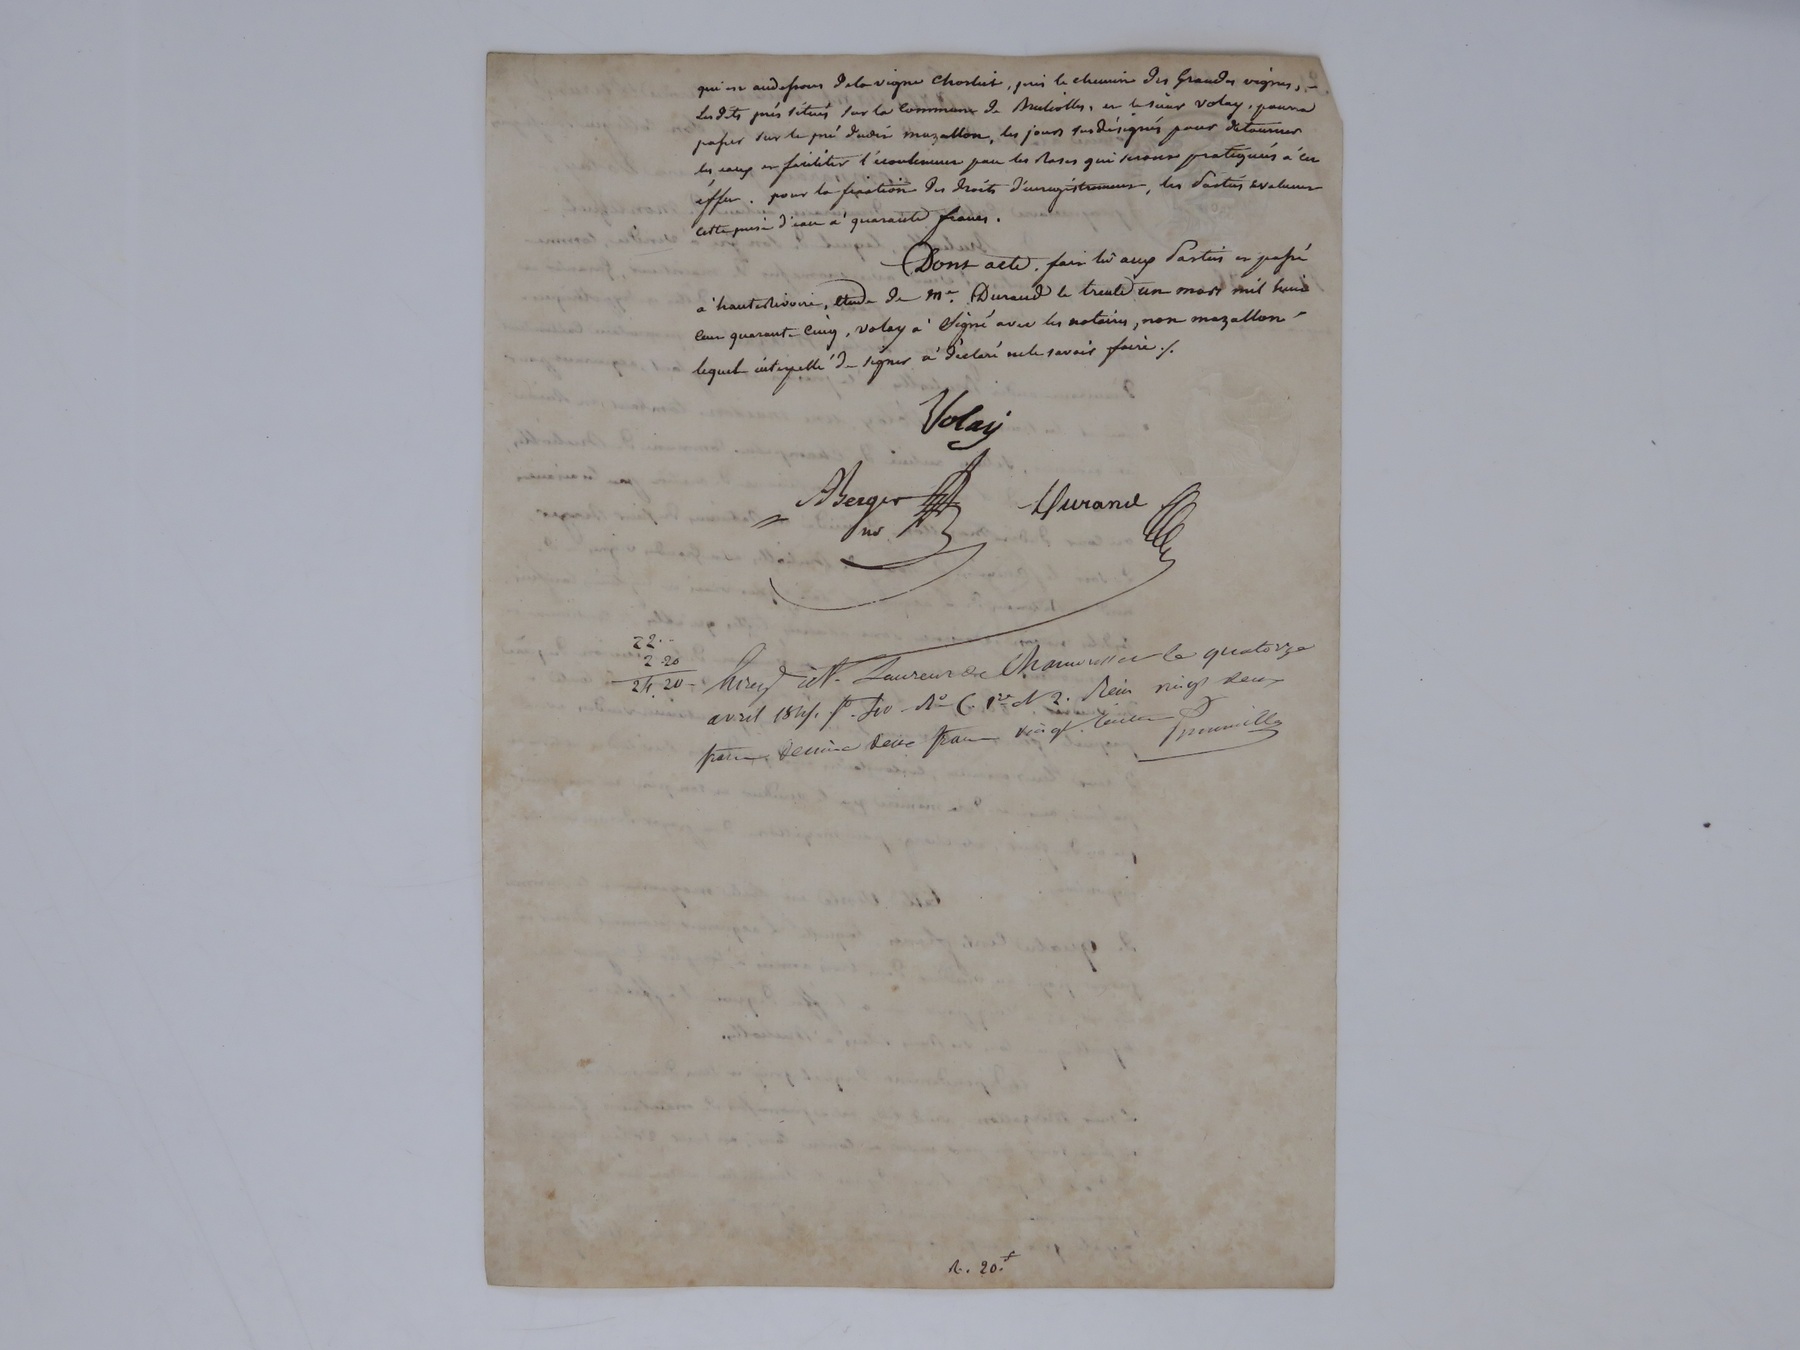 qui est audessous dela vigne Chorliet, près le chemin des Grandes vignes, -
Lesdits prés situés sur la Commune de Brulioles, et le sieur Volay, pourra
passer sur le pré dudit mazallon, les jours susdésignés pour détourner
les eaux et faciliter l'écoulement par les Rases qui seront pratiqués à cet
éffet. pour la fixation des droits d'enregistrement, les Parties évaluent
cette prise d'eau à quarante francs.
Dont acte. fait lû aux Parties et passé
à hauterivoire, étude de Me. Durand le trente un mars mil huit
cent quarante cinq, volay a Signé avec les notaires, non mazallon
lequel interpellé de signer a déclaré ne le savoir faire ./.
Volay
ABerger
nre
Durand
22.--
2.20
24.20-
Enregd à St. Laurent de Chamousset le quatorze
avril 1845. fo. Ro C. 1re N 2. Reçu vingt deux
francs décime deux francs vingt centimes
20.f